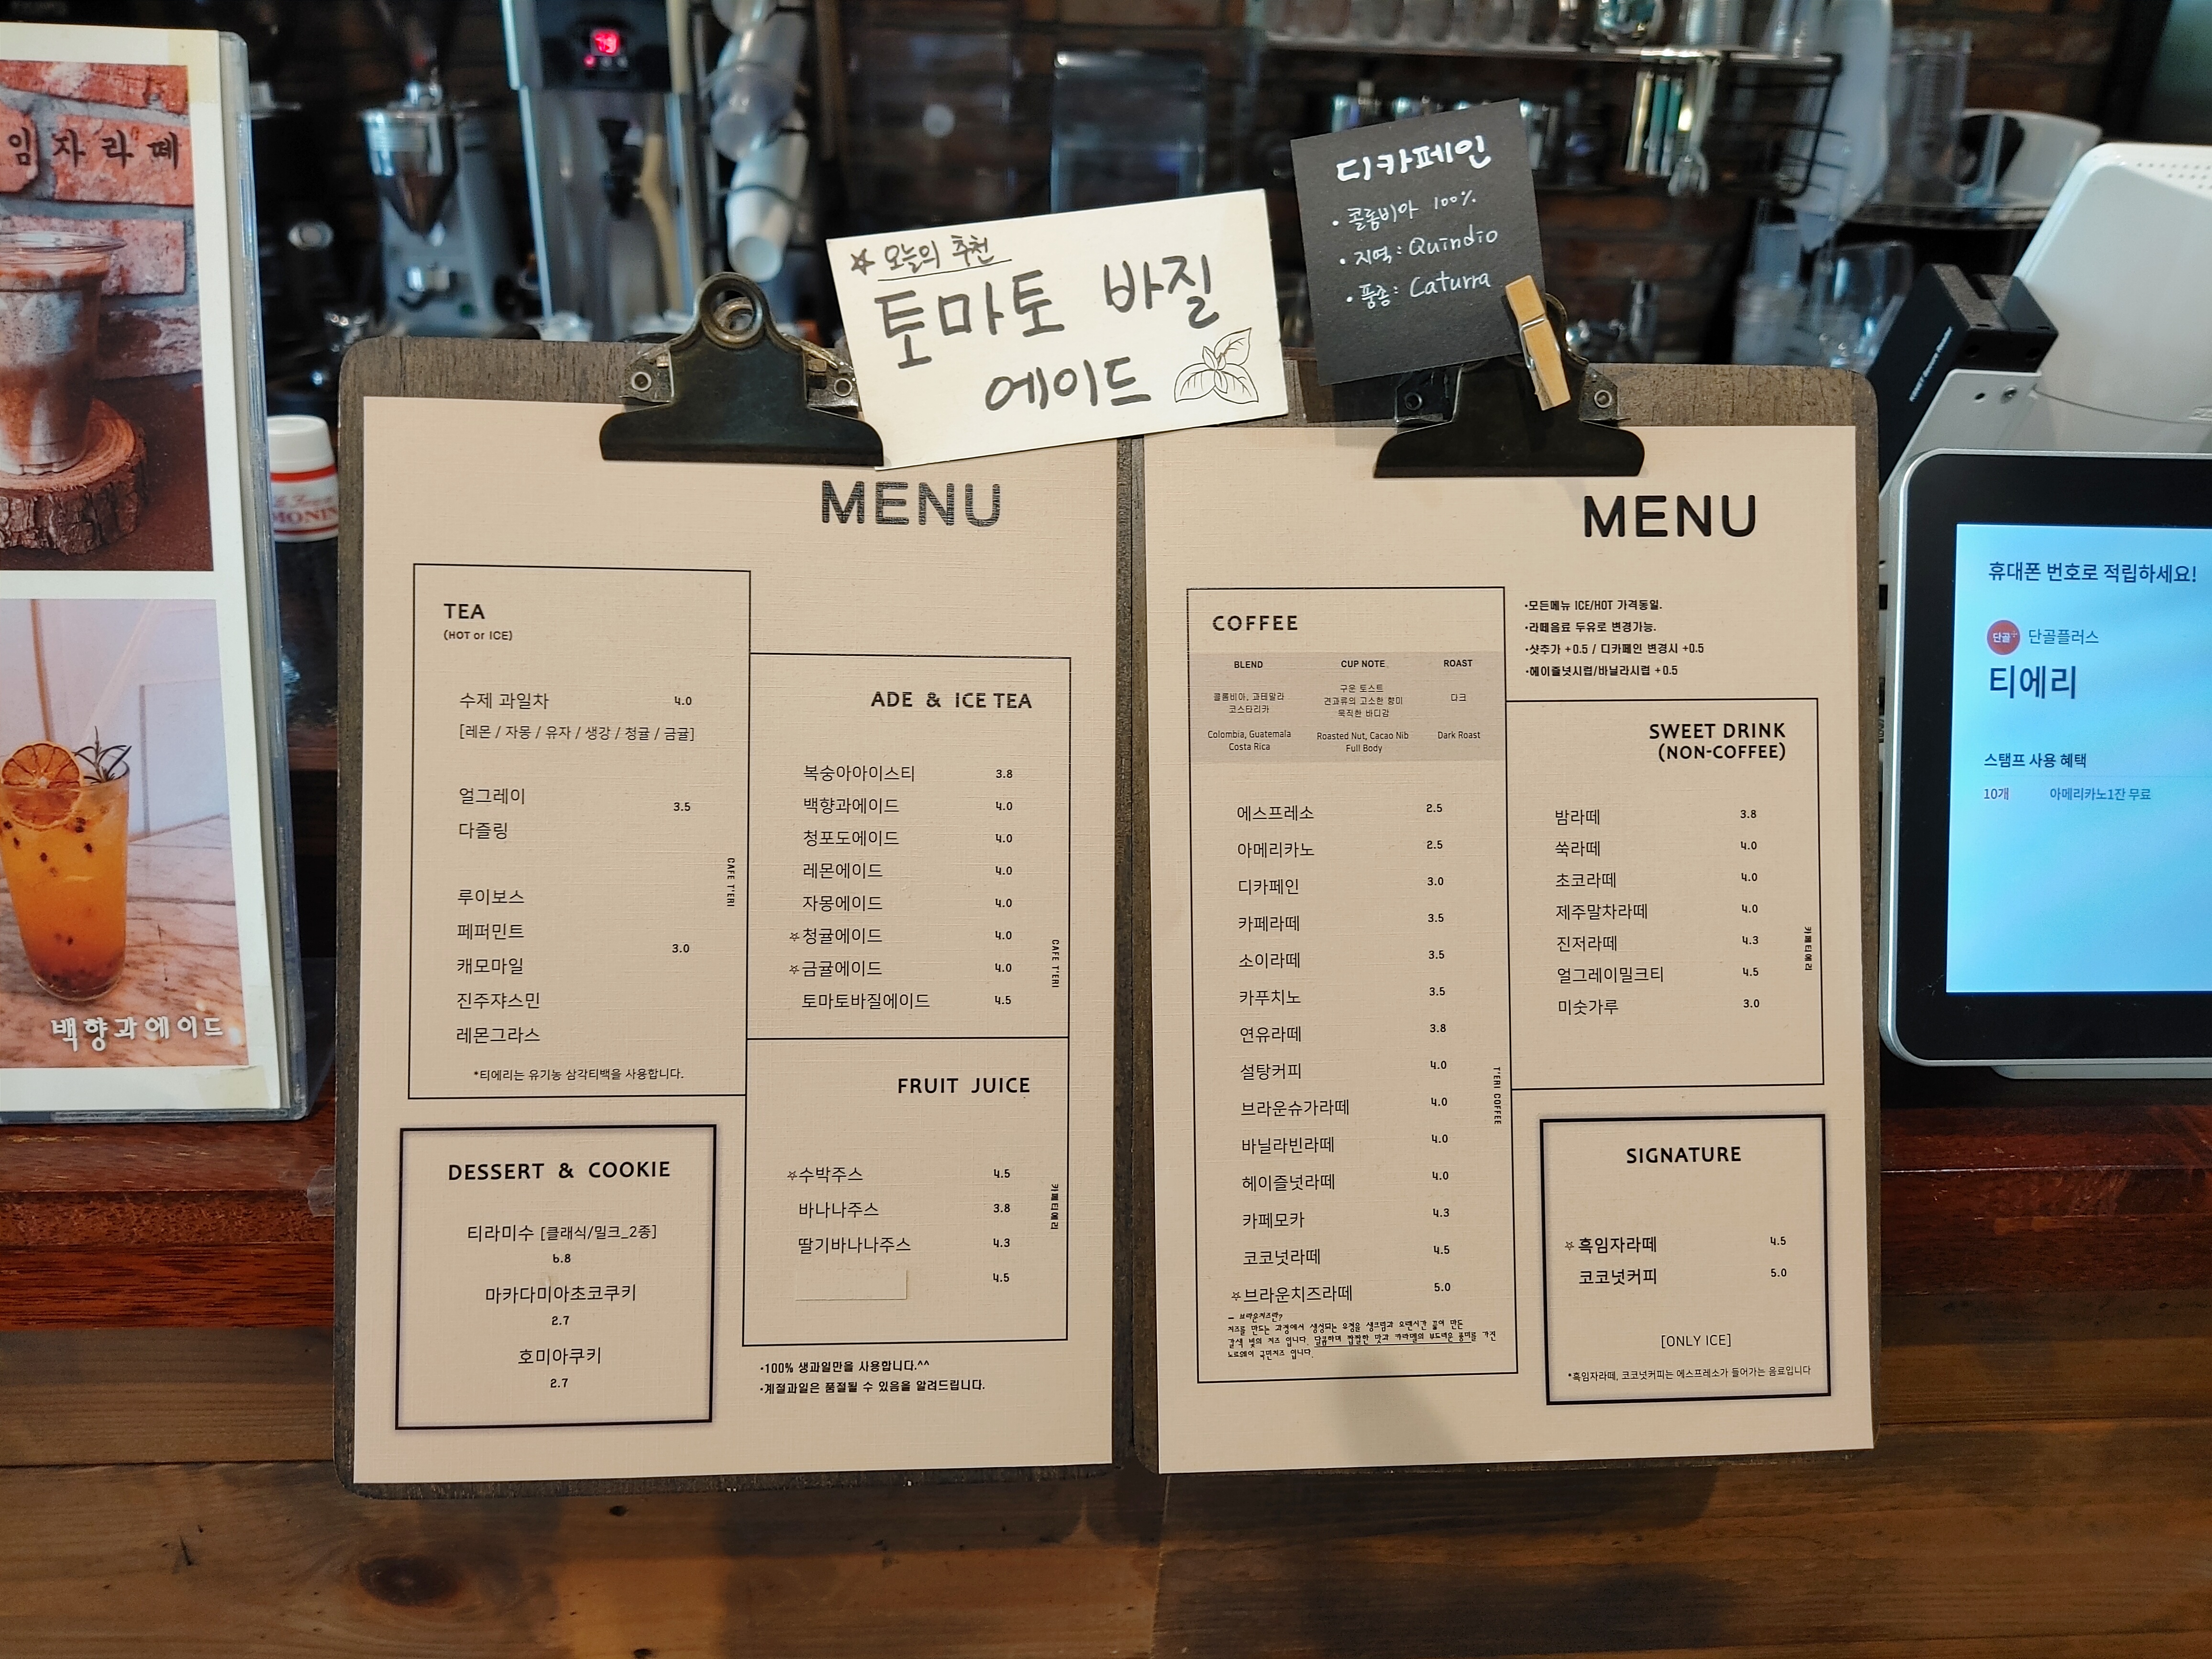 임자라떼
백향과에이드
MONIN
☆ 오늘의 추천
토마토 바질
에이드
디카페인
• 콜롬비아 100%
• 지역: Quindio
• 품종: Caturra
MENU
TEA
(HOT or ICE)
수제 과일차 4.0
[레몬 / 자몽 / 유자 / 생강 / 청귤 / 금귤]
얼그레이
3.5
다즐링
루이보스
페퍼민트
3.0
캐모마일
진주쟈스민
레몬그라스
*티에리는 유기농 삼각티백을 사용합니다.
CAFE T'ERI
DESSERT & COOKIE
티라미수 [클래식/밀크_2종]
6.8
마카다미아초코쿠키
2.7
호미아쿠키
2.7
ADE & ICE TEA
복숭아아이스티 3.8
백향과에이드 4.0
청포도에이드 4.0
레몬에이드 4.0
자몽에이드 4.0
☆청귤에이드 4.0
☆금귤에이드 4.0
토마토바질에이드 4.5
CAFE T'ERI
FRUIT JUICE
☆수박주스 4.5
바나나주스 3.8
딸기바나나주스 4.3
4.5
카페티에리
•100% 생과일만을 사용합니다.^^
•계절과일은 품절될 수 있음을 알려드립니다.
MENU
COFFEE
BLEND CUP NOTE ROAST
콜롬비아, 과테말라
코스타리카
구운 토스트
견과류의 고소한 향미
묵직한 바디감
다크
Colombia, Guatemala
Costa Rica
Roasted Nut, Cacao Nib
Full Body
Dark Roast
에스프레소 2.5
아메리카노 2.5
디카페인 3.0
카페라떼 3.5
소이라떼 3.5
카푸치노 3.5
연유라떼 3.8
설탕커피 4.0
브라운슈가라떼 4.0
바닐라빈라떼 4.0
헤이즐넛라떼 4.0
카페모카 4.3
코코넛라떼 4.5
☆브라운치즈라떼 5.0
– 브라운치즈란?
치즈를 만드는 과정에서 생성되는 유청을 생크림과 오랜시간 끓여 만든
갈색 빛의 치즈 입니다. 달콤하며 짭짤한 맛과 카라멜의 부드러운 풍미를 가진
노르웨이 국민치즈 입니다.
T'ERI COFFEE
•모든메뉴 ICE/HOT 가격동일.
•라떼음료 두유로 변경가능.
•샷추가 +0.5 / 디카페인 변경시 +0.5
•헤이즐넛시럽/바닐라시럽 +0.5
SWEET DRINK
(NON-COFFEE)
밤라떼 3.8
쑥라떼 4.0
초코라떼 4.0
제주말차라떼 4.0
진저라떼 4.3
얼그레이밀크티 4.5
미숫가루 3.0
카페티에리
SIGNATURE
☆흑임자라떼 4.5
코코넛커피 5.0
[ONLY ICE]
*흑임자라떼, 코코넛커피는 에스프레소가 들어가는 음료입니다
휴대폰 번호로 적립하세요!
단골+ 단골플러스
티에리
스탬프 사용 혜택
10개 아메리카노1잔 무료